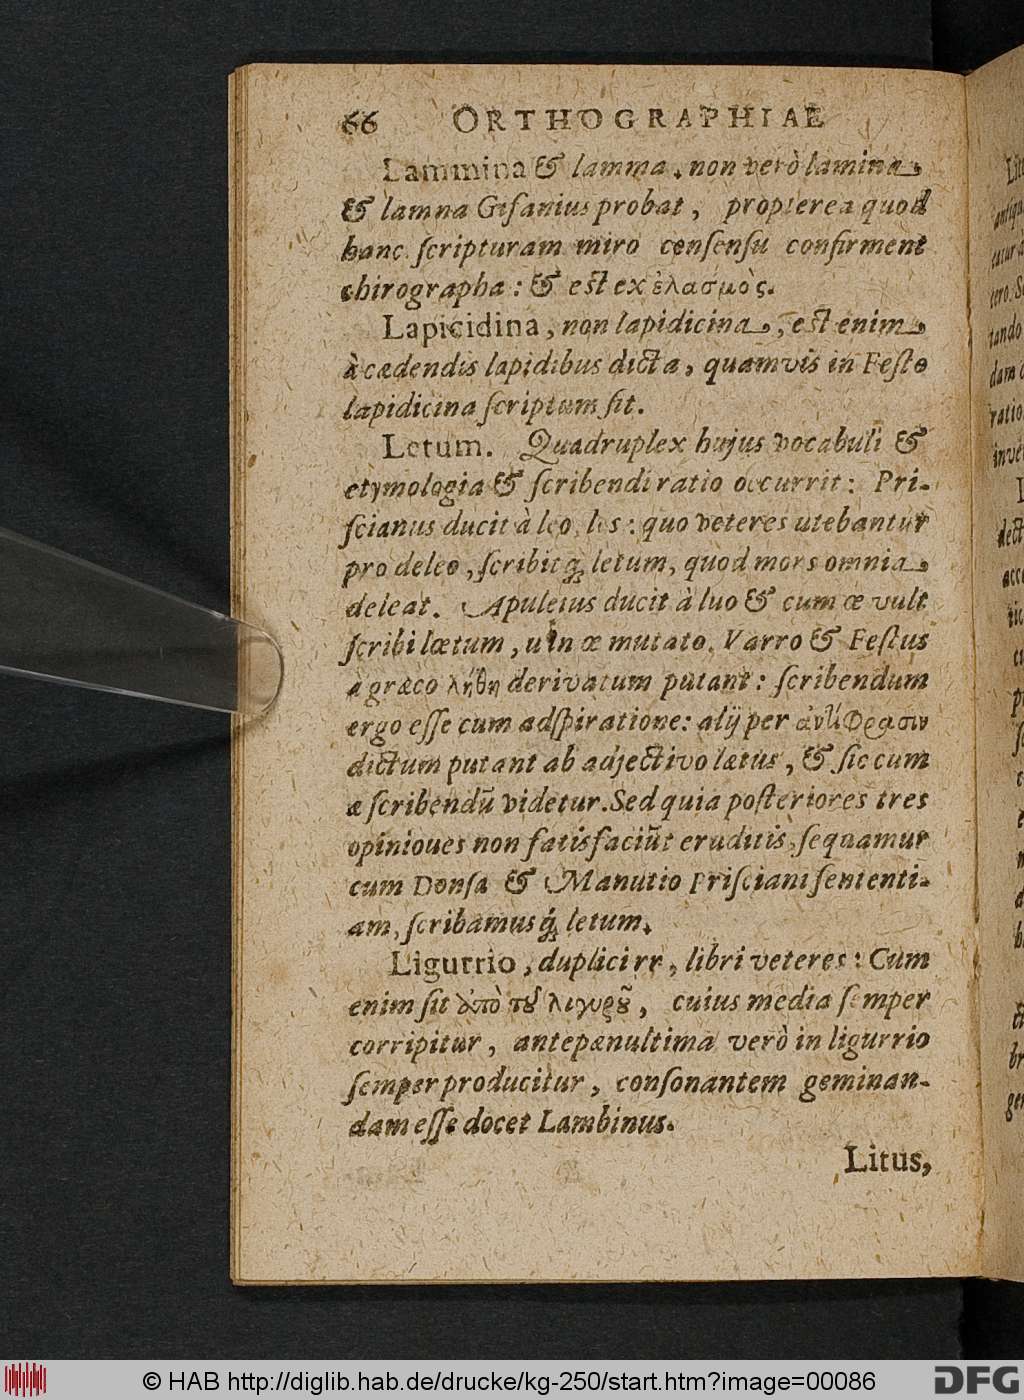 66 ORTHOGRAPHIAE
Lammina & lamma, non verò lamina,
& lamna Gifanius probat, propterea quod
hanc ſcripturam miro conſenſu confirment
chirographa: & eſt ex ἐλασμὸς.
Lapicidina, non lapidicina, eſt enim
à cædendis lapidibus dicta, quamvis in Feſto
lapidicina ſcriptum ſit.
Letum. Quadruplex hujus vocabuli &
etymologia & ſcribendi ratio occurrit: Pri-
ſcianus ducit à leo, les: quo veteres utebantur
pro deleo, ſcribitq́; letum, quod mors omnia
deleat. Apuleius ducit à luo & cum œ vult
ſcribi lœtum, u in œ mutato. Varro & Feſtus
à græco λήθη derivatum putant: ſcribendum
ergo eſſe cum adſpiratione: alij per ἀντίφρασιν
dictum putant ab adjectivo lætus, & ſic cum
æ ſcribendū videtur. Sed quia poſteriores tres
opinioues non ſatisfaciūt eruditis, ſequamur
cum Donſa & Manutio Priſciani ſententi-
am, ſcribamusq́; letum.
Ligurrio, duplici rr, libri veteres: Cum
enim ſit ἀπὸ τοῦ λιγυροῦ, cuius media ſemper
corripitur, antepænultima verò in ligurrio
ſemper producitur, conſonantem geminan-
dam eſſe docet Lambinus.
Litus,
© HAB http://diglib.hab.de/drucke/kg-250/start.htm?image=00086
DFG